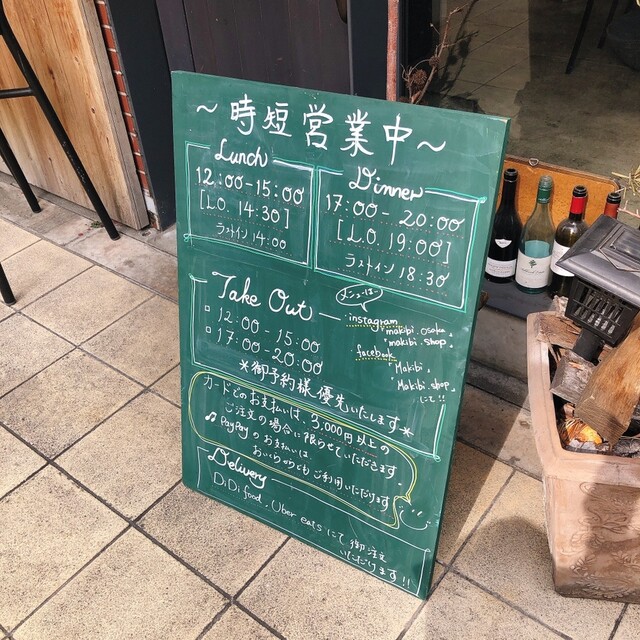 ～時短営業中～
Lunch
12:00-15:00
[L.O. 14:30]
ラストイン 14:00
Dinner
17:00-20:00
[L.O. 19:00]
ラストイン 18:30
Take Out
12:00-15:00
17:00-20:00
メニューは
instagram
makibi.osaka
makibi.shop
facebook
Makibi.
Makibi.shop
にて!!
*御予約様優先いたします*
カードでのお支払いは、3,000円以上の
ご注文の場合に限らせていただきます。
♫PayPayのお支払いは、
おいくらからでもご利用いただけます
Delivery
DiDi food, Uber eatsにて御注文
いただけます!!